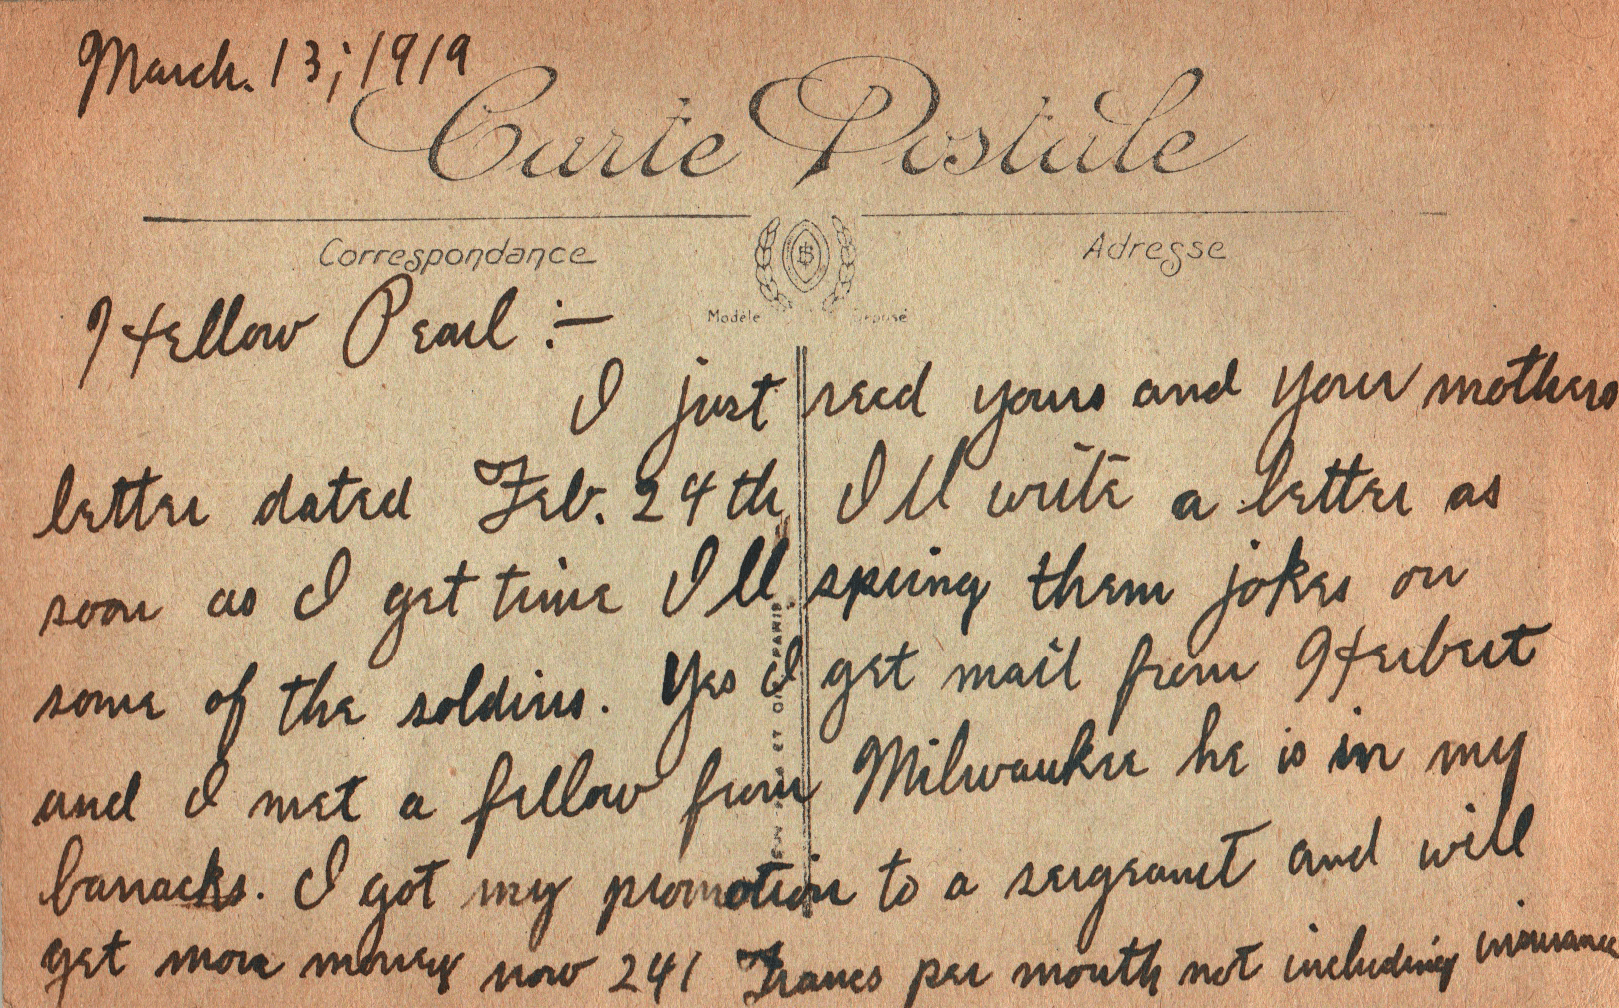 March. 13; 1919
Carte Postale
Correspondance
Adresse
Modèle
Hellow Pearl :—
I just recd yours and your mothers
letter dated Feb. 24th I'll write a letter as
soon as I get time I'll spring them jokes on
some of the soldiers. Yes I get mail from Herbert
and I met a fellow from Milwaukee he is in my
barracks. I got my promotion to a sergeant and will
get more money now 241 Francs per month not including insurance
PARIS